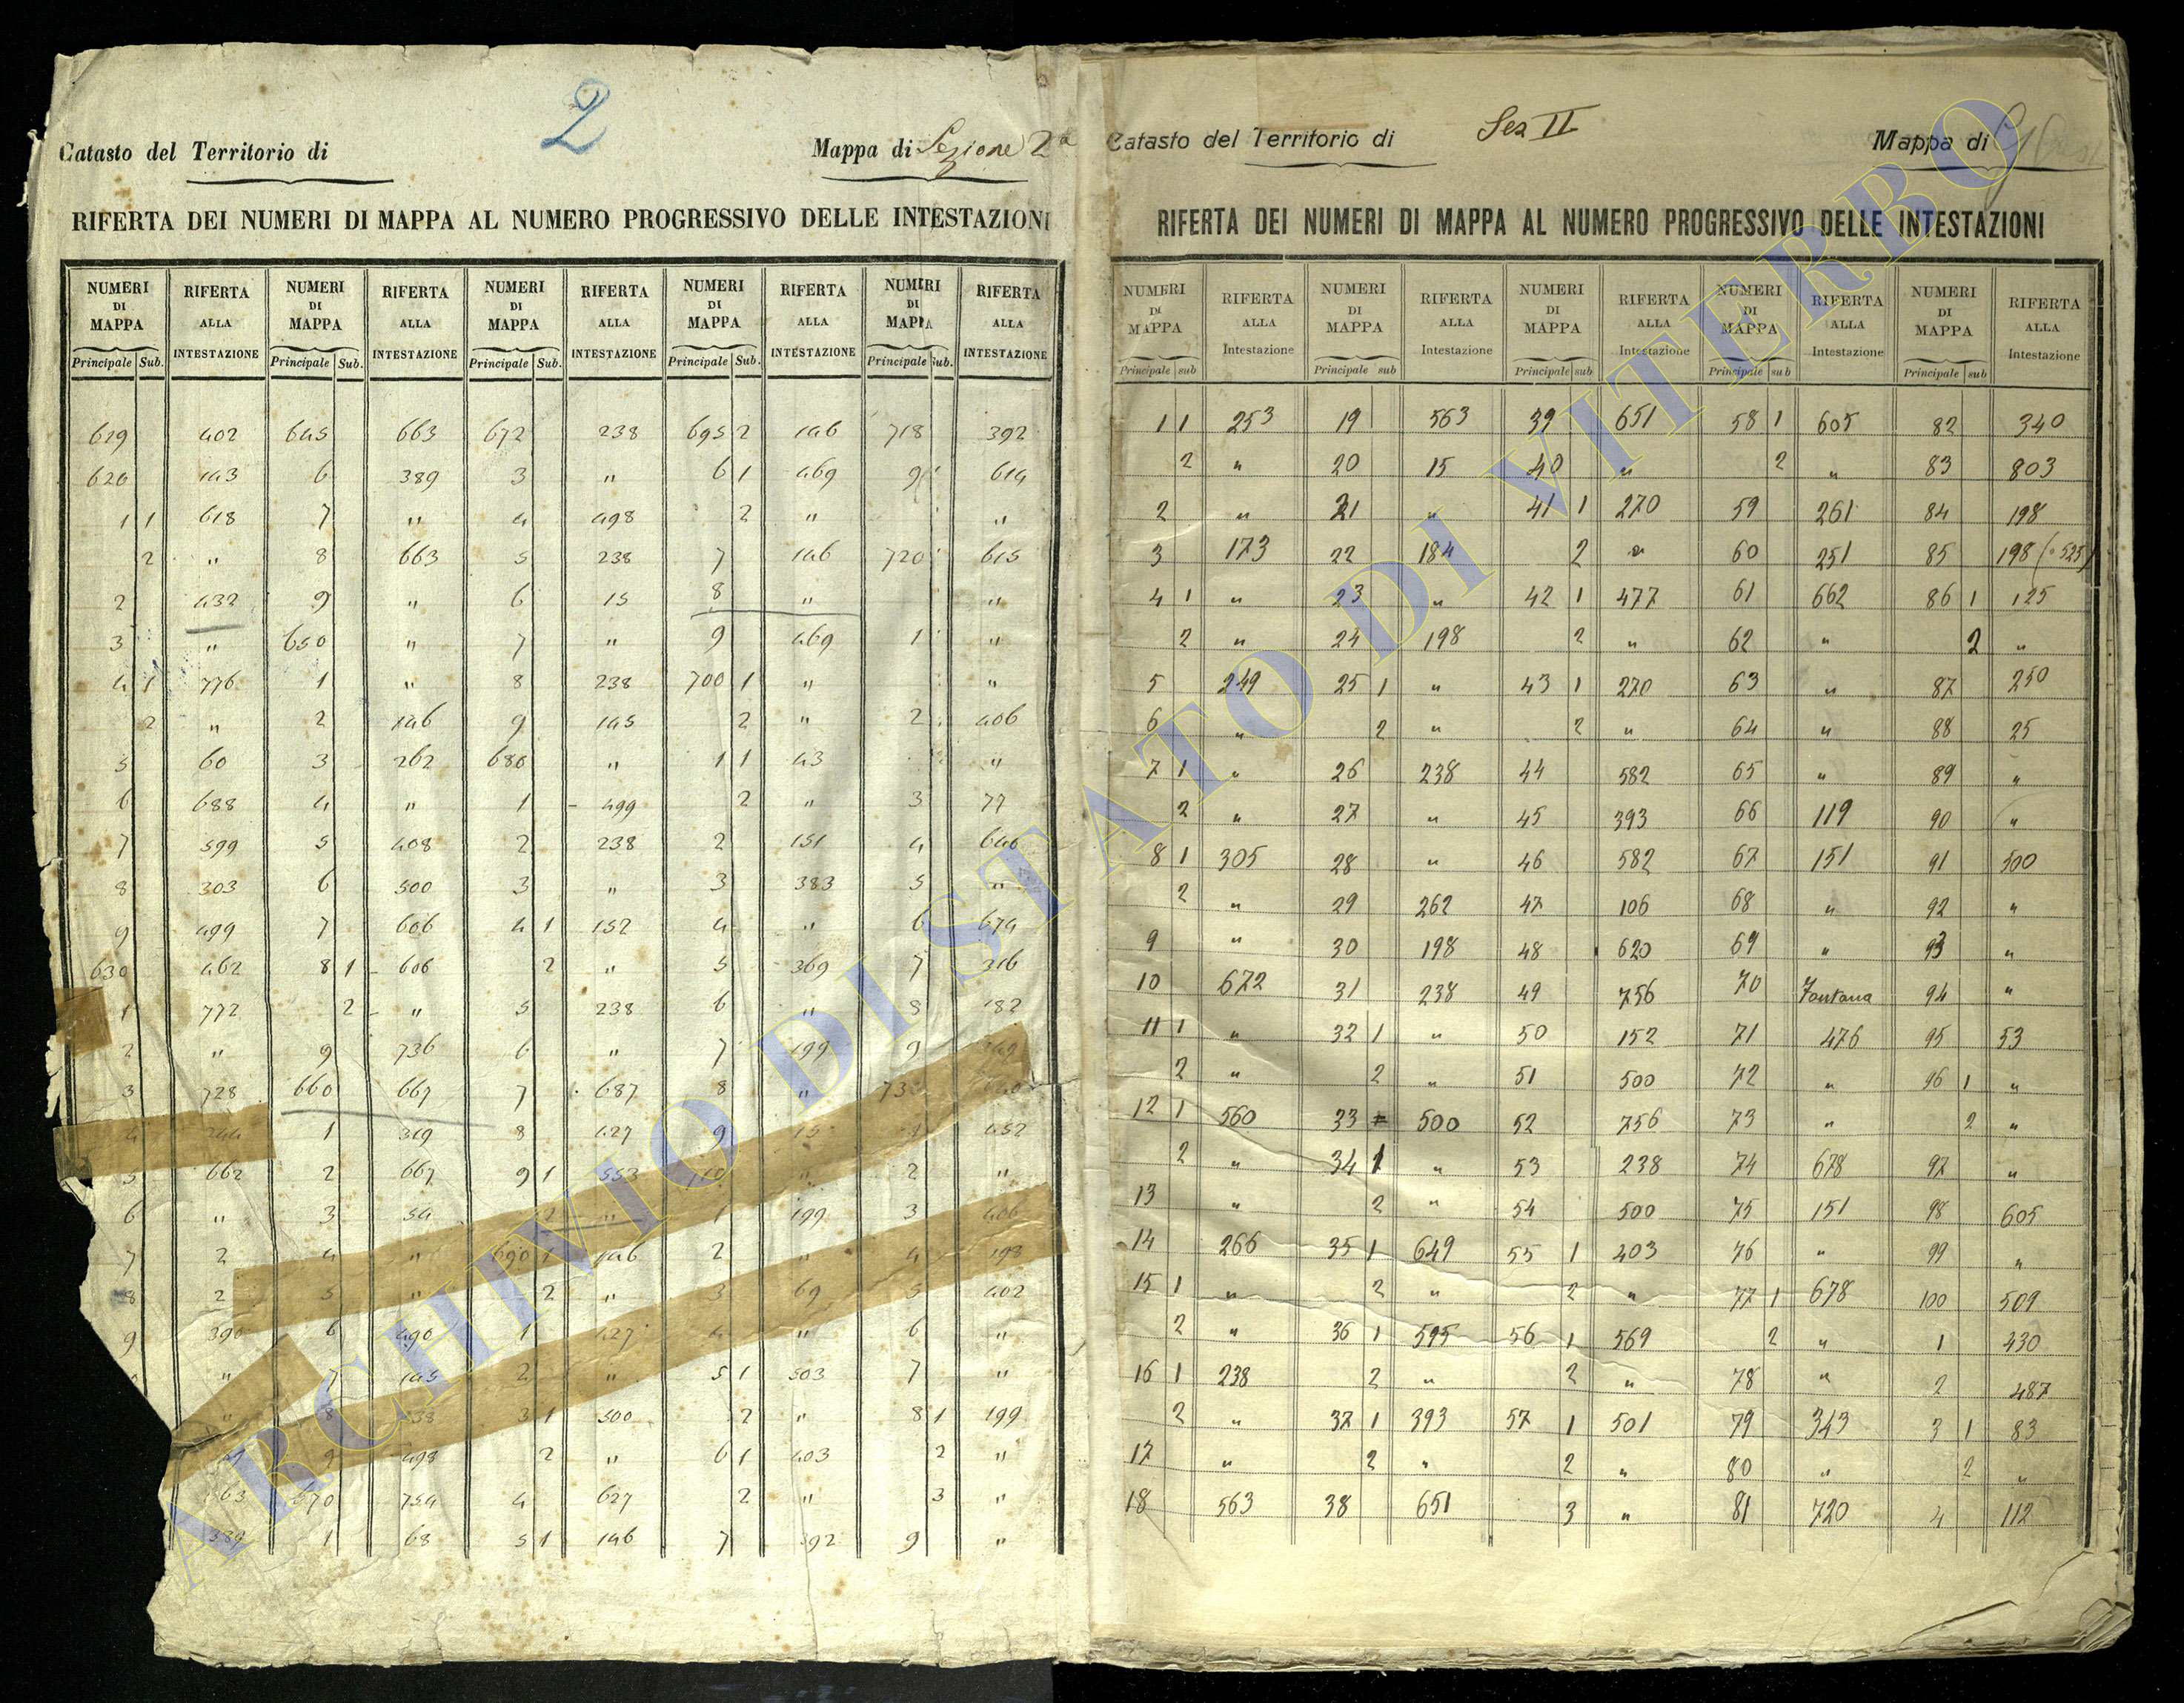 2
Catasto del Territorio di Mappa di Sezione 2a
RIFERTA DEI NUMERI DI MAPPA AL NUMERO PROGRESSIVO DELLE INTESTAZIONI
NUMERI DI MAPPA RIFERTA ALLA INTESTAZIONE NUMERI DI MAPPA RIFERTA ALLA INTESTAZIONE NUMERI DI MAPPA RIFERTA ALLA INTESTAZIONE NUMERI DI MAPPA RIFERTA ALLA INTESTAZIONE NUMERI DI MAPPA RIFERTA ALLA INTESTAZIONE
Principale Sub. Principale Sub. Principale Sub. Principale Sub. Principale Sub.
619 402 645 663 672 238 695 2 146 718 392
620 143 6 389 3 " 6 1 469 9 614
1 1 618 7 " 4 498 2 " "
2 " 8 663 5 238 7 146 720 615
2 432 9 " 6 15 8 " "
3 " 650 " 7 " 9 469 1 "
4 1 776 1 " 8 238 700 1 " "
2 " 2 146 9 145 2 " 2 406
5 60 3 262 680 " 1 1 43 "
6 688 4 " 1 499 2 " 3 77
7 599 5 408 2 238 2 151 4 646
8 303 6 500 3 " 3 383 5 "
9 499 7 606 4 1 152 4 " 6 674
630 462 8 1 606 2 " 5 369 7 316
1 772 2 " 5 238 6 " 8 182
2 " 9 736 6 " 7 199 9
3 728 660 667 7 687 8 "
1 319 8 427 9 452
5 662 2 667 9 1 553 " 2 "
6 " 3 54 2 " 1 199 3 406
7 2 4 " 690 1 146 2 " 4 198
8 2 5 " 2 " 3 69 5 402
9 390 6 490 1 427 4 " 6 "
" 7 145 2 " 5 1 503 7 "
" 8 238 3 1 500 2 " 8 1 199
9 498 2 " 6 1 403 2 "
663 670 754 4 627 2 " 3 "
389 1 68 5 1 146 7 392 9 "
Catasto del Territorio di Sez II Mappa di
RIFERTA DEI NUMERI DI MAPPA AL NUMERO PROGRESSIVO DELLE INTESTAZIONI
NUMERI DI MAPPA RIFERTA ALLA Intestazione NUMERI DI MAPPA RIFERTA ALLA Intestazione NUMERI DI MAPPA RIFERTA ALLA Intestazione NUMERI DI MAPPA RIFERTA ALLA Intestazione NUMERI DI MAPPA RIFERTA ALLA Intestazione
Principale sub Principale sub Principale sub Principale sub Principale sub
1 1 253 19 563 39 651 58 1 605 82 340
2 " 20 15 40 " 2 " 83 803
2 " 21 " 41 1 270 59 261 84 198
3 173 22 184 2 " 60 251 85 198 (525)
4 1 " 23 " 42 1 477 61 662 86 1 125
2 " 24 198 2 " 62 " 2 "
5 249 25 1 " 43 1 270 63 " 87 250
6 " 2 " 2 " 64 " 88 25
7 1 " 26 238 44 582 65 " 89 "
2 " 27 " 45 393 66 119 90 "
8 1 305 28 " 46 582 67 151 91 500
2 " 29 262 47 106 68 " 92 "
9 " 30 198 48 620 69 " 93 "
10 672 31 238 49 756 70 Fontana 94 "
11 1 " 32 1 " 50 152 71 476 95 53
2 " 2 " 51 500 72 " 96 1 "
12 1 560 33 500 52 756 73 " 2 "
2 " 34 1 " 53 238 74 678 97 "
13 " 2 " 54 500 75 151 98 605
14 266 35 1 649 55 1 403 76 " 99 "
15 1 " 2 " 2 " 77 1 678 100 509
2 " 36 1 595 56 1 569 2 " 1 430
16 1 238 2 " 2 " 78 " 2 487
2 " 37 1 393 57 1 501 79 343 3 1 83
17 " 2 " 2 " 80 " 2 "
18 563 38 651 3 " 81 720 4 112
ARCHIVIO DI STATO DI VITERBO